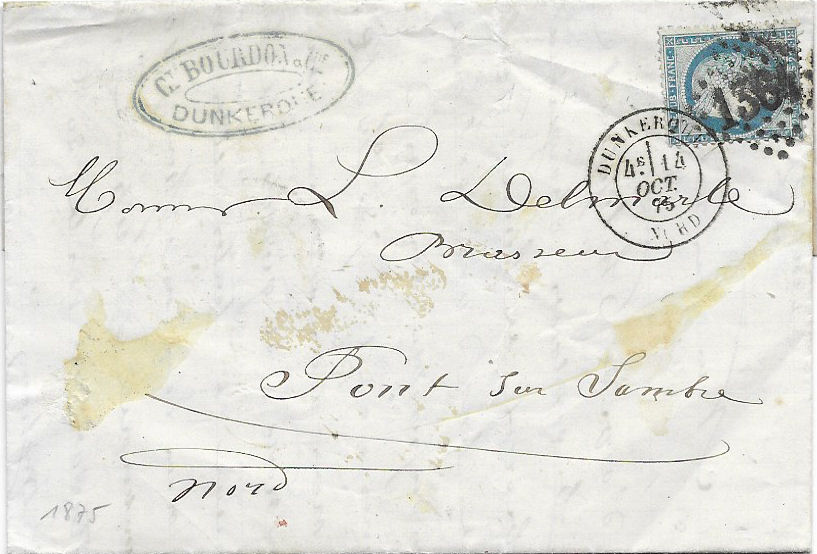 Ct. BOURDON & Cie
DUNKERQUE
REPUB. FRANC.
POSTES
1387
DUNKERQUE
4E 14
OCT.
75
NORD
Monsieur L. Delmarle
Brasseur
Pont sur Sambre
Nord
1875